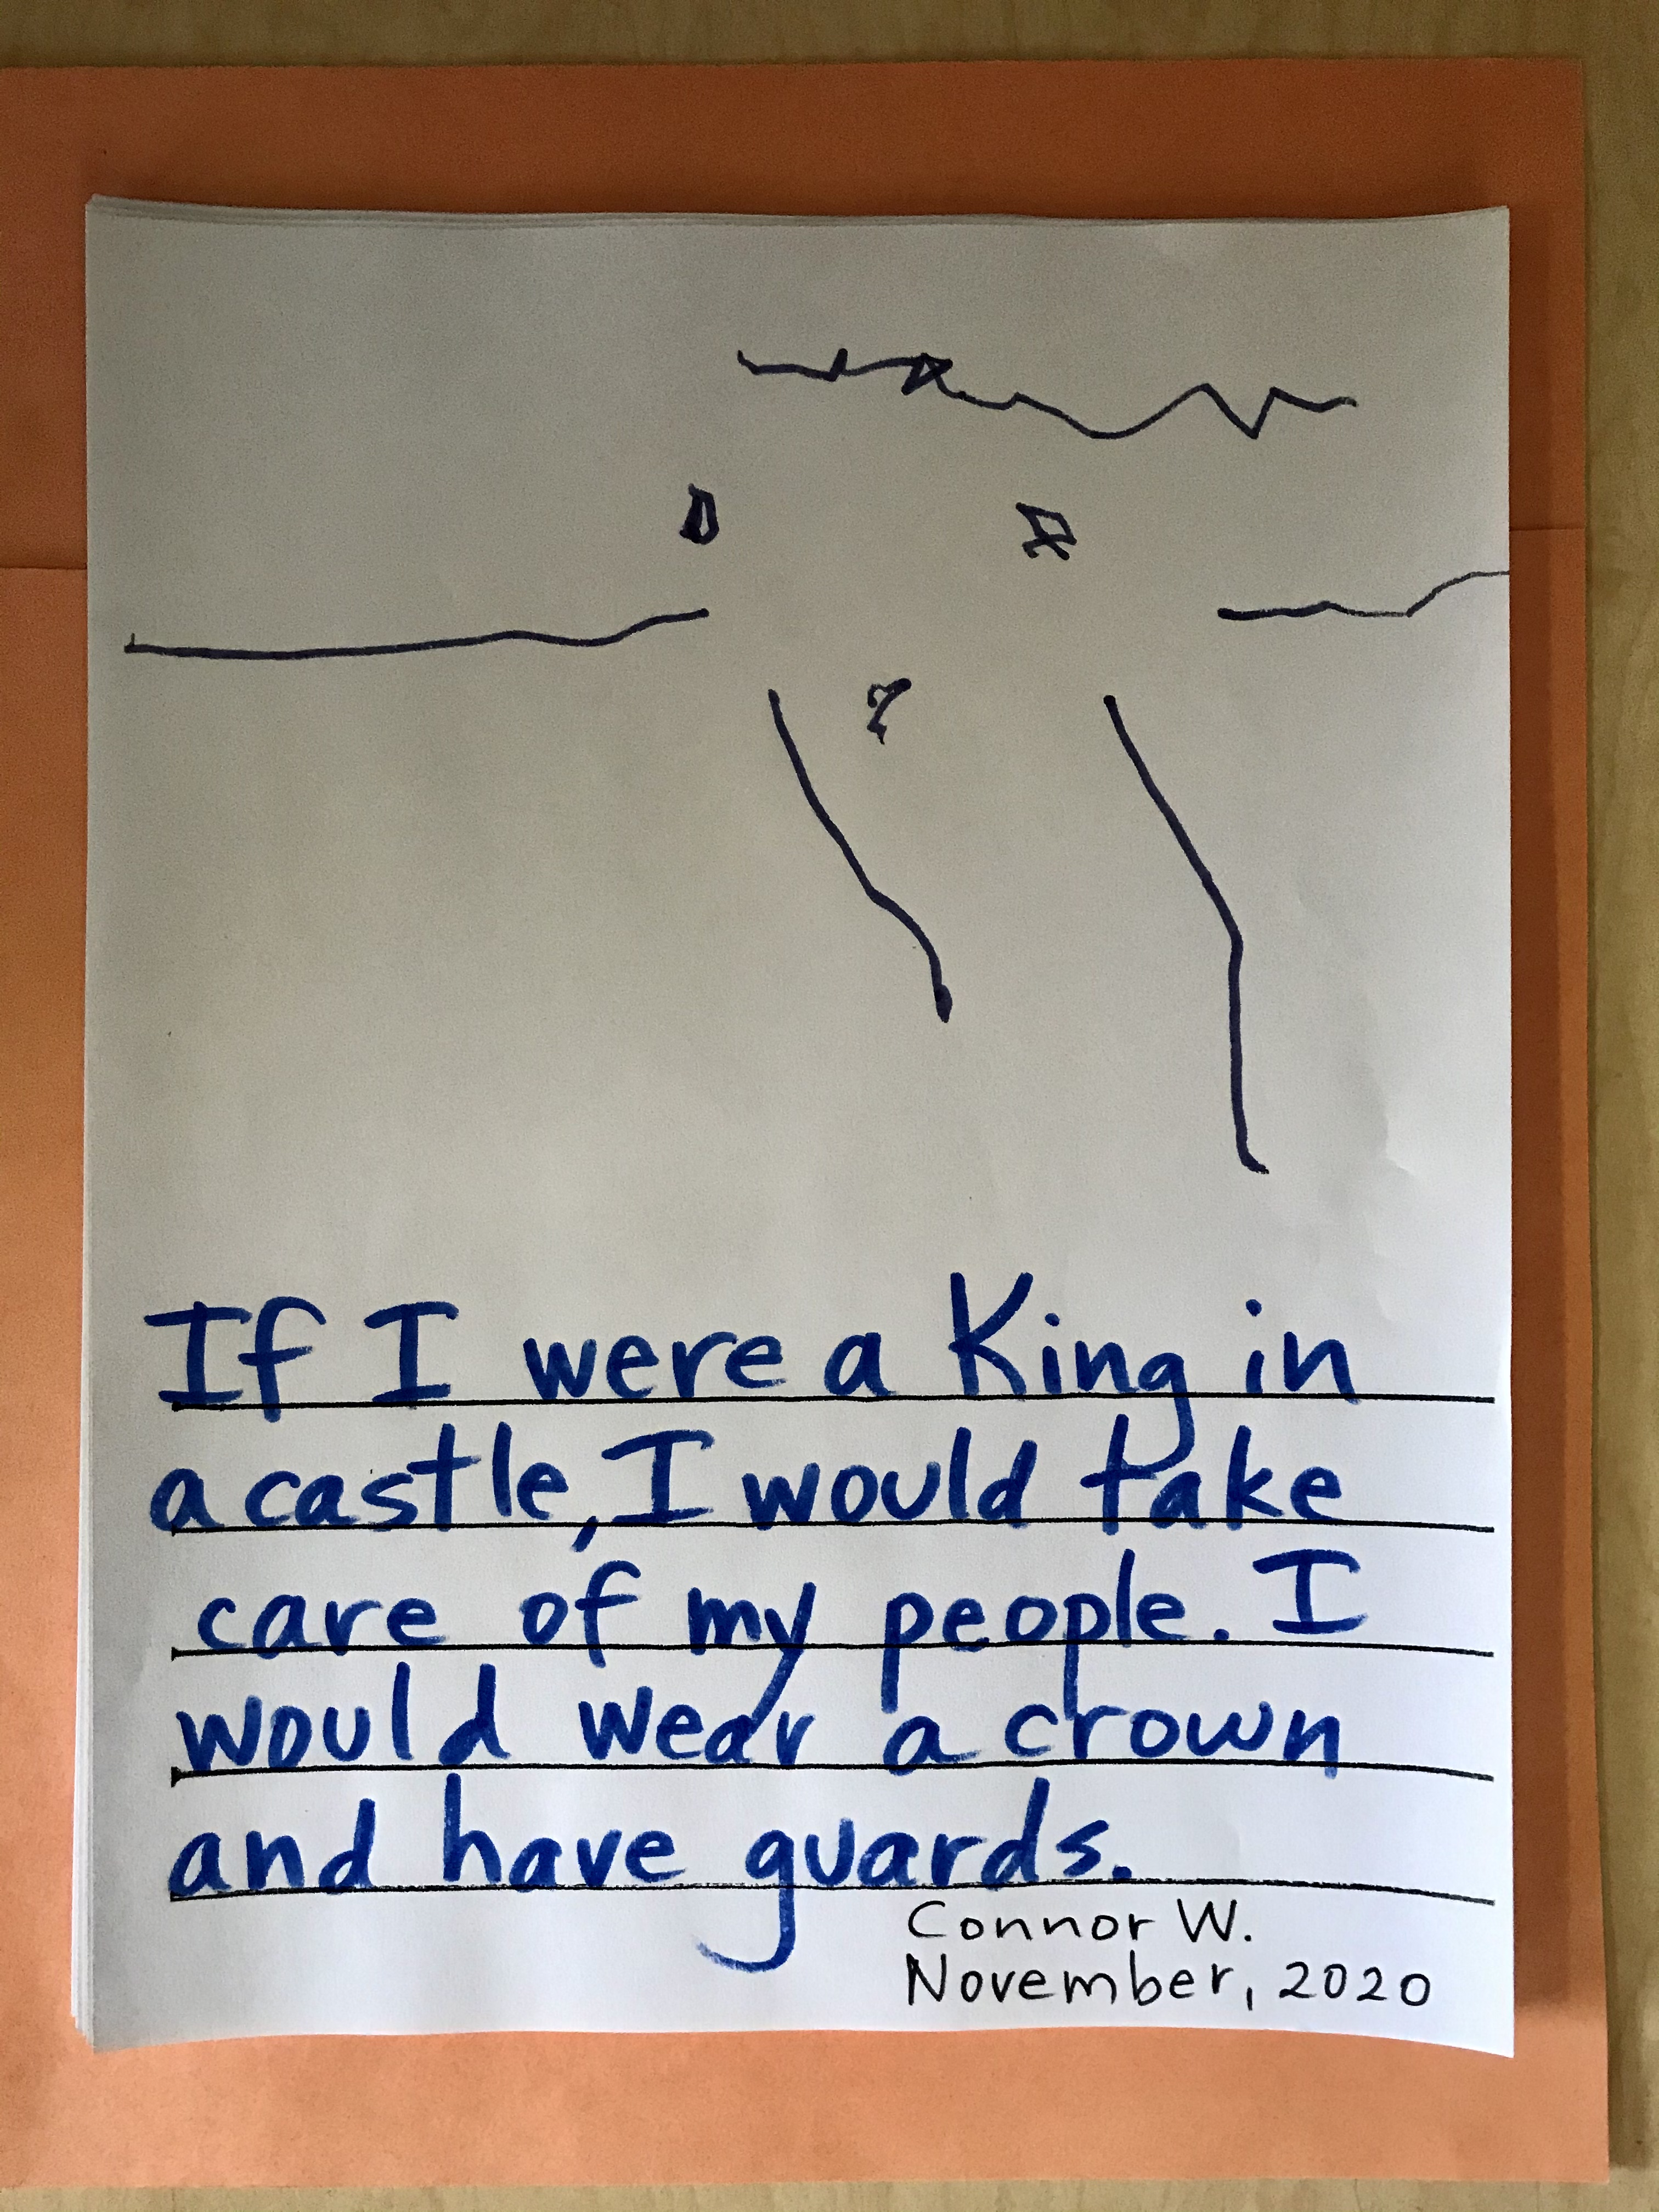 If I were a King in
a castle, I would take
care of my people. I
would wear a crown
and have guards.
Connor W.
November, 2020